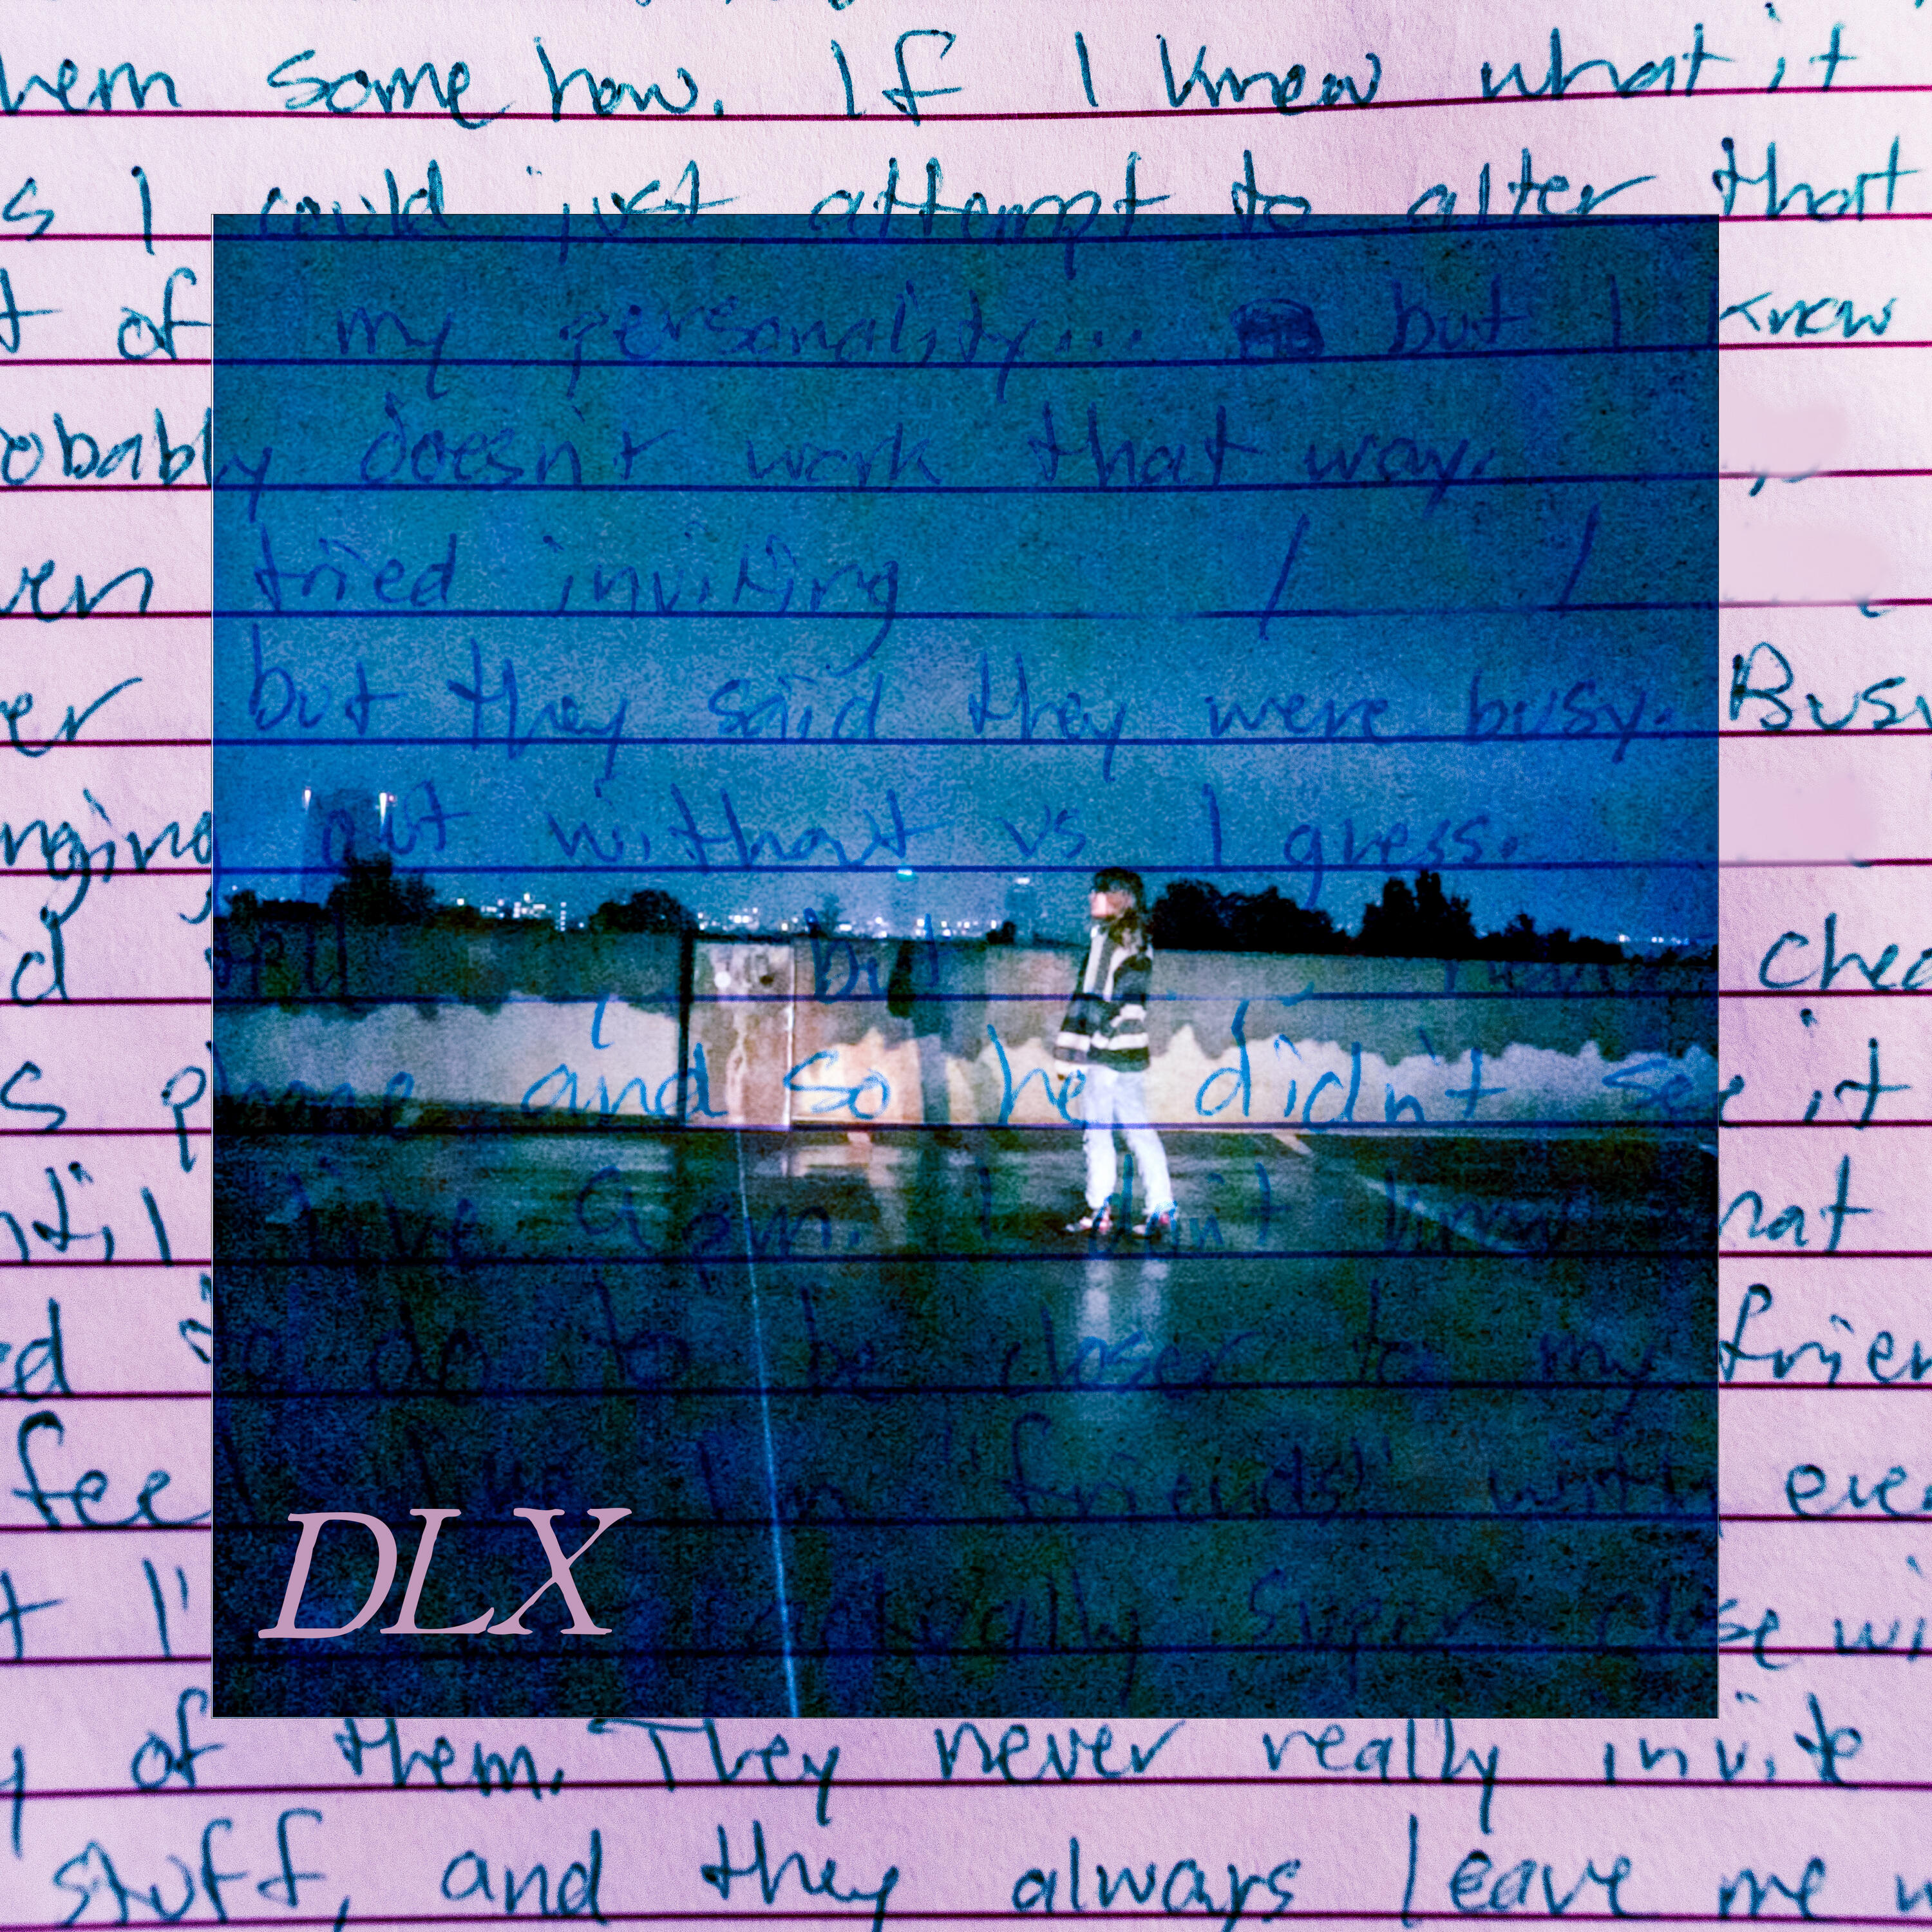 hem some how. If I knew what it
s I could just attempt to alter that
t of my personality... but I knew
obably doesn't work that way.
ven tried inviting
er but they said they were busy. Busy
nging out without us I guess.
d but chec
s phone and so he didn't see it
ntil like 9pm. I don't know hat
ed to do to be closer to my frien
feel like I'm "friends" with ever
t I' actually super close wi
y of them. They never really invite
stuff, and they always leave me w
DLX